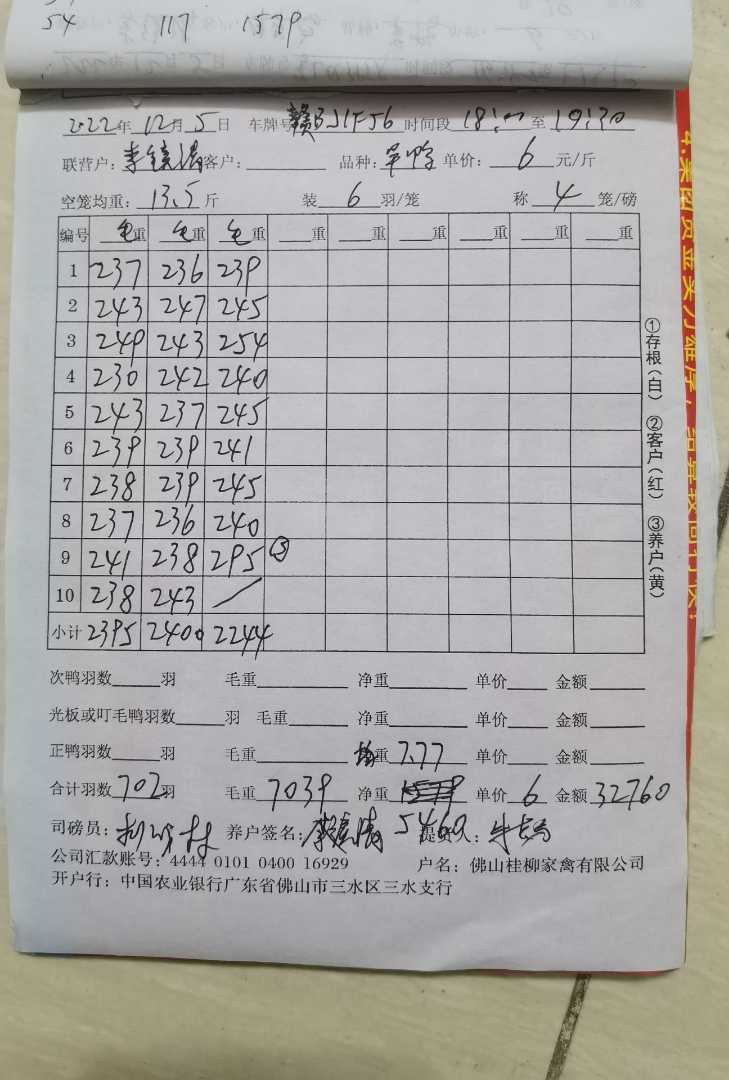 54 117 1579
2022年 12月 5日 车牌号 赣BJ1F56 时间段 18:00 至 19:30
联营户: 客户: 品种: 单价: 6 元/斤
空笼均重: 13.5 斤 装 6 羽/笼 称 4 笼/磅
编号 毛重 毛重 毛重 重 重 重 重 重 重
1 237 236 239
2 243 247 245
3 249 243 254
4 230 242 240
5 243 237 245
6 239 239 241
7 238 239 245
8 237 236 240
9 241 238 295 ⑤
10 238 243 /
小计 2395 2400 2244
次鸭羽数 羽 毛重 净重 单价 金额
光板或叮毛鸭羽数 羽 毛重 净重 单价 金额
正鸭羽数 羽 毛重 均重 7.77 单价 金额
合计羽数 702 羽 毛重 7039 净重 1579 单价 6 金额 32760
司磅员: 养户签名: 5460 提货人:
公司汇款账号: 4444 0101 0400 16929 户名: 佛山桂柳家禽有限公司
开户行: 中国农业银行广东省佛山市三水区三水支行
①存根(白) ②客户(红) ③养户(黄)